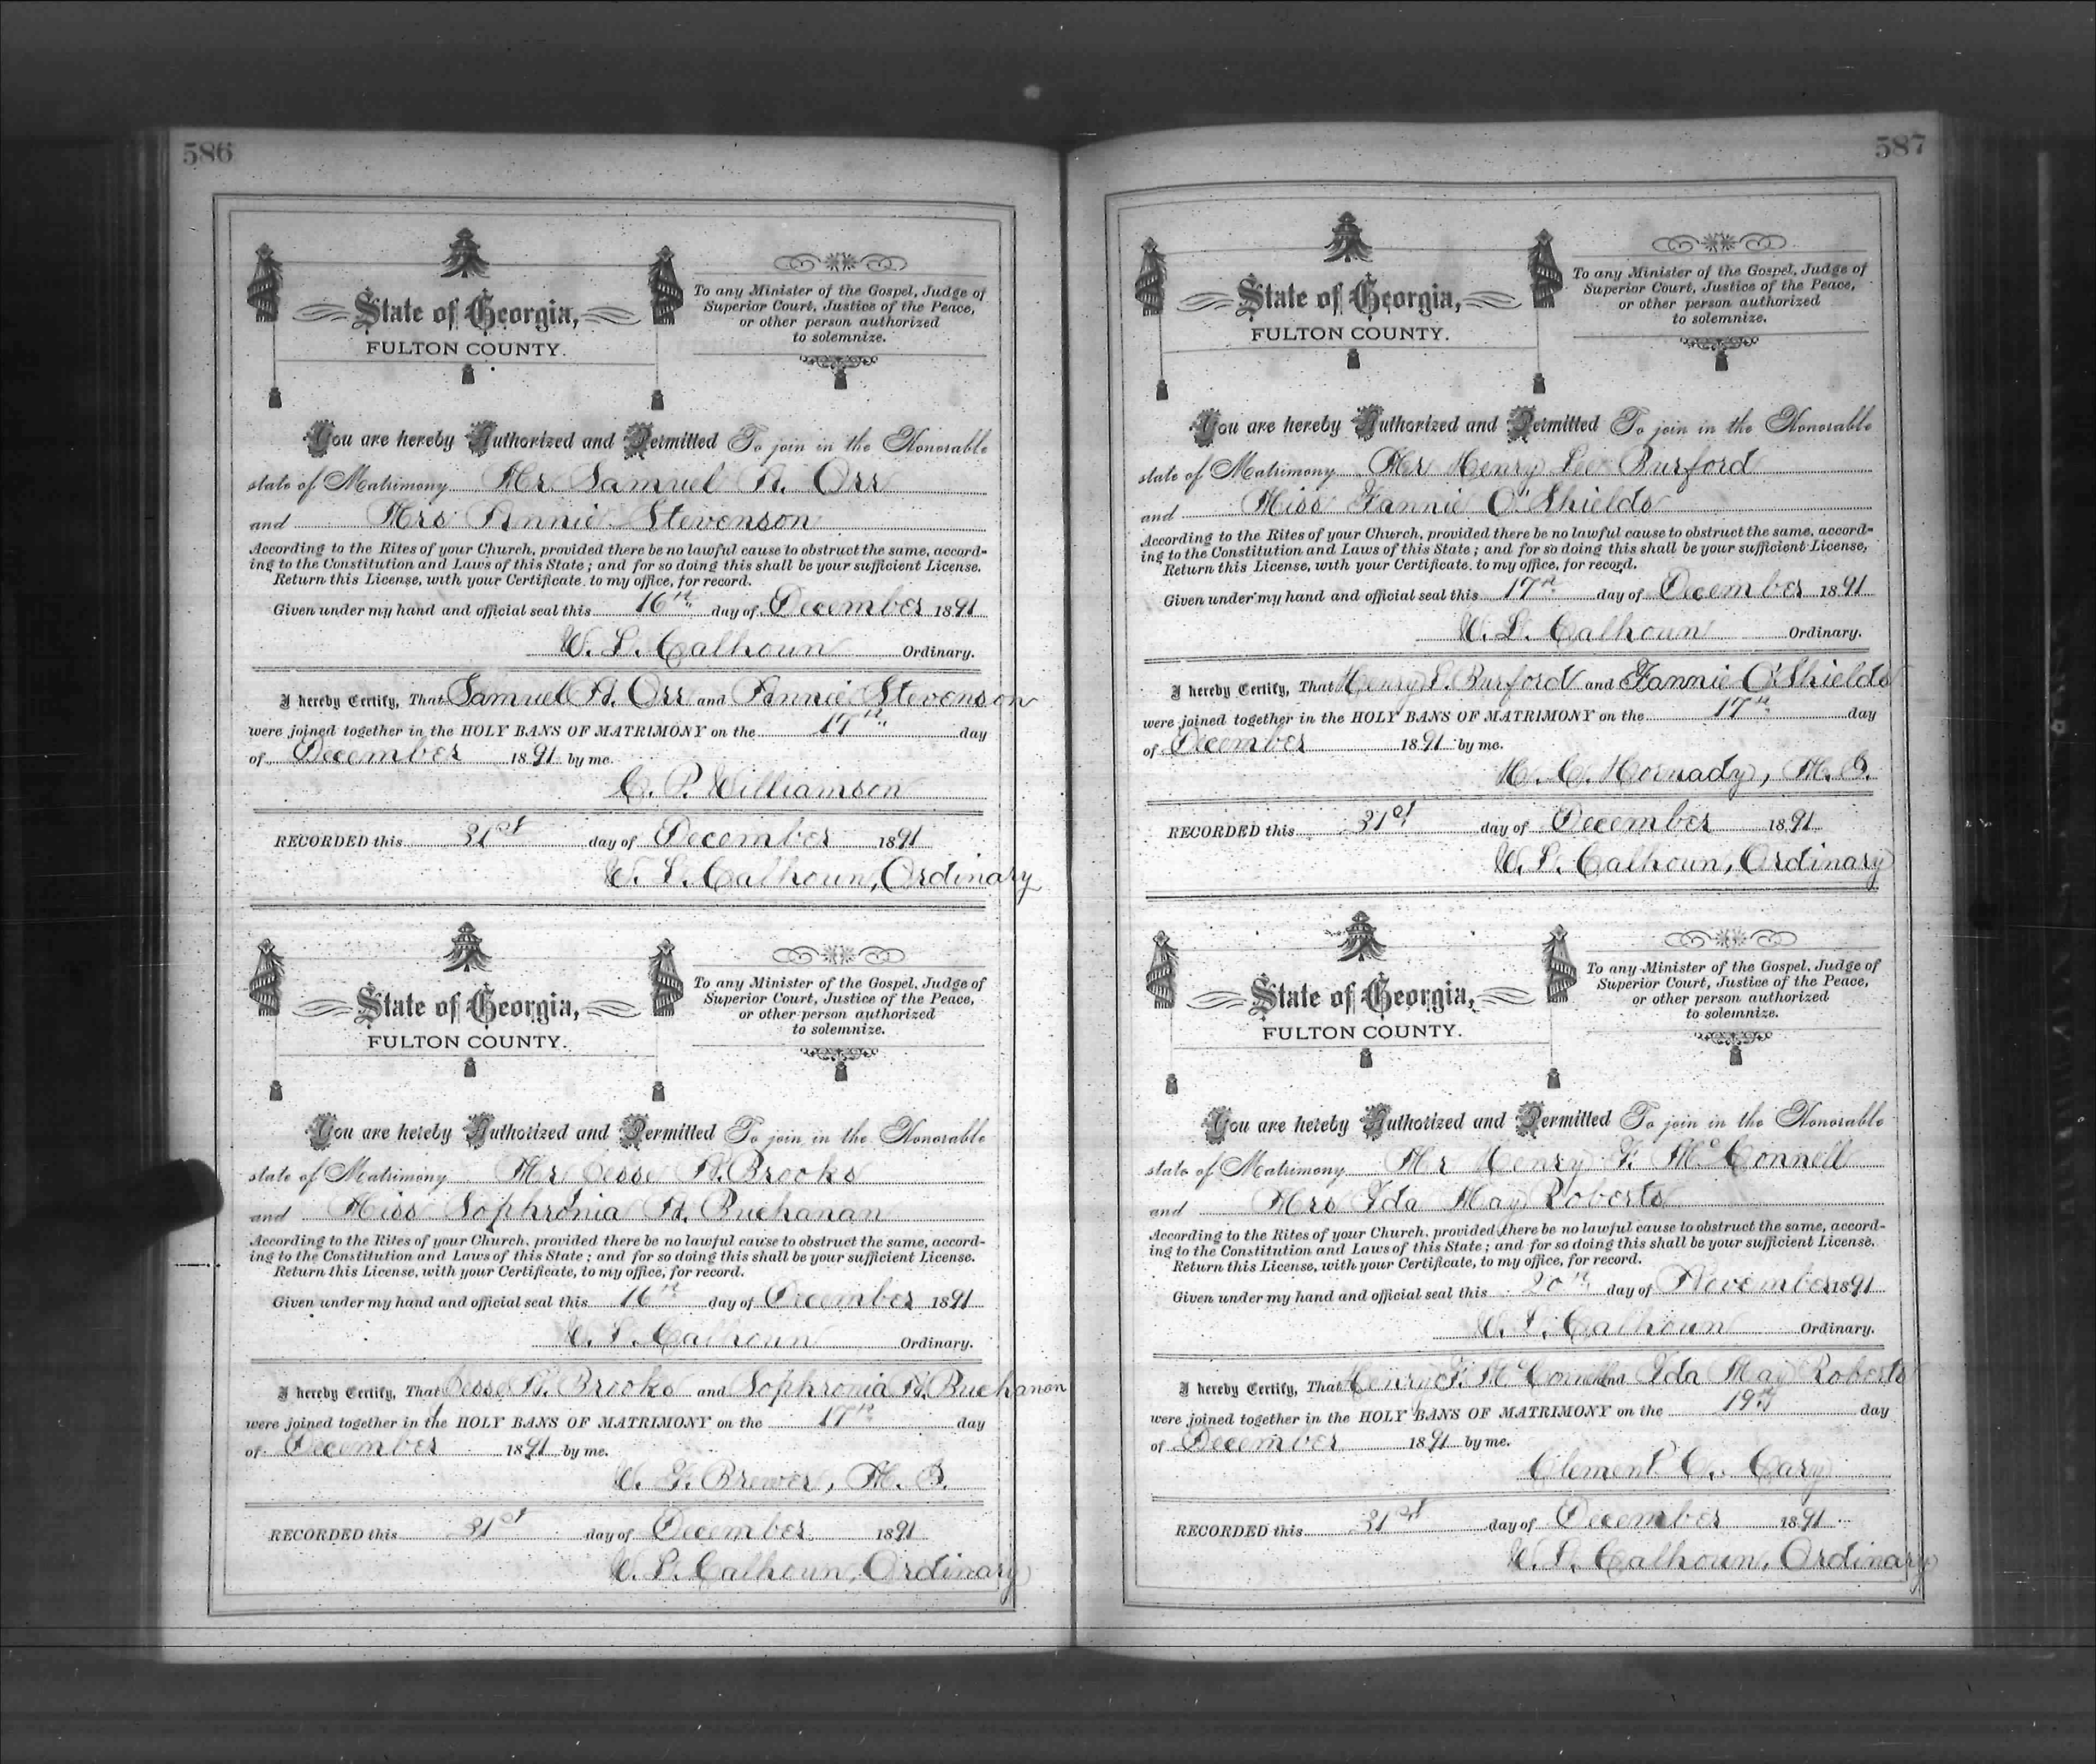 586
State of Georgia,
FULTON COUNTY.
To any Minister of the Gospel, Judge of
Superior Court, Justice of the Peace,
or other person authorized
to solemnize.
You are hereby Authorized and Permitted To join in the Honorable
state of Matrimony Mr Samuel A. Orr
and Mrs Annie Stevenson
According to the Rites of your Church, provided there be no lawful cause to obstruct the same, accord-
ing to the Constitution and Laws of this State; and for so doing this shall be your sufficient License.
Return this License, with your Certificate, to my office, for record.
Given under my hand and official seal this 16th day of December 1891
W. L. Calhoun Ordinary.
I hereby Certify, That Samuel A. Orr and Annie Stevenson
were joined together in the HOLY BANS OF MATRIMONY on the 17th day
of December 1891 by me.
C. P. Williamson
RECORDED this 31st day of December 1891
W. L. Calhoun, Ordinary
State of Georgia,
FULTON COUNTY.
To any Minister of the Gospel, Judge of
Superior Court, Justice of the Peace,
or other person authorized
to solemnize.
You are hereby Authorized and Permitted To join in the Honorable
state of Matrimony Mr Jesse A. Brooks
and Miss Sophronia A. Buchanan
According to the Rites of your Church, provided there be no lawful cause to obstruct the same, accord-
ing to the Constitution and Laws of this State; and for so doing this shall be your sufficient License.
Return this License, with your Certificate, to my office, for record.
Given under my hand and official seal this 16th day of December 1891
W. L. Calhoun Ordinary.
I hereby Certify, That Jesse A. Brooks and Sophronia A. Buchanan
were joined together in the HOLY BANS OF MATRIMONY on the 17th day
of December 1891 by me.
W. F. Brewer, M. G.
RECORDED this 31st day of December 1891
W. L. Calhoun, Ordinary
587
State of Georgia,
FULTON COUNTY.
To any Minister of the Gospel, Judge of
Superior Court, Justice of the Peace,
or other person authorized
to solemnize.
You are hereby Authorized and Permitted To join in the Honorable
state of Matrimony Mr Henry Lee Burford
and Miss Fannie O'Shields
According to the Rites of your Church, provided there be no lawful cause to obstruct the same, accord-
ing to the Constitution and Laws of this State; and for so doing this shall be your sufficient License,
Return this License, with your Certificate, to my office, for record.
Given under my hand and official seal this 17th day of December 1891
W. L. Calhoun Ordinary.
I hereby Certify, That Henry L. Burford and Fannie O'Shields
were joined together in the HOLY BANS OF MATRIMONY on the 17th day
of December 1891 by me.
H. C. Hornady, M. G.
RECORDED this 31st day of December 1891
W. L. Calhoun, Ordinary
State of Georgia,
FULTON COUNTY.
To any Minister of the Gospel, Judge of
Superior Court, Justice of the Peace,
or other person authorized
to solemnize.
You are hereby Authorized and Permitted To join in the Honorable
state of Matrimony Mr Henry F. McConnell
and Mrs Ida May Roberts
According to the Rites of your Church, provided there be no lawful cause to obstruct the same, accord-
ing to the Constitution and Laws of this State; and for so doing this shall be your sufficient License.
Return this License, with your Certificate, to my office, for record.
Given under my hand and official seal this 20th day of November 1891
W. L. Calhoun Ordinary.
I hereby Certify, That Henry F. McConnell and Ida May Roberts
were joined together in the HOLY BANS OF MATRIMONY on the 19th day
of December 1891 by me.
Clement C. Cary
RECORDED this 31st day of December 1891
W. L. Calhoun, Ordinary